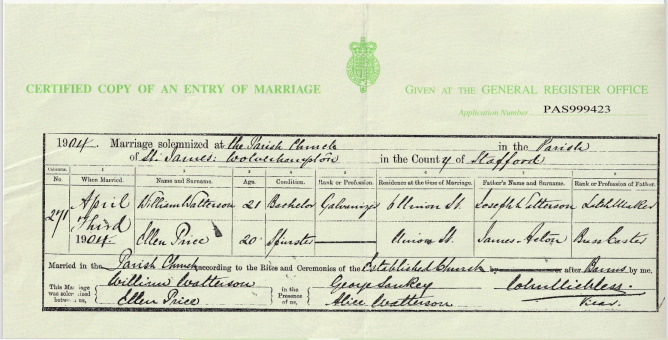 CERTIFIED COPY OF AN ENTRY OF MARRIAGE
GIVEN AT THE GENERAL REGISTER OFFICE
Application Number PAS999423
1904. Marriage solemnized at the Parish Church in the Parish
of St. James: Wolverhampton in the County of Stafford
Columns. 1 2 3 4 5 6 7 8
No. When Married. Name and Surname. Age. Condition. Rank or Profession. Residence at the time of Marriage. Father's Name and Surname. Rank or Profession of Father.
271 April Third 1904 William Watterson 21 Bachelor Galvanizer Union St. Joseph Watterson
Ellen Price 20 Spinster Union St. James Brass Caster
Married in the Parish Church according to the Rites and Ceremonies of the Established Church after Banns by me,
This Marriage was solemnized between us, William Watterson in the Presence of us, George Sankey
Ellen Price Alice Watterson Vicar.